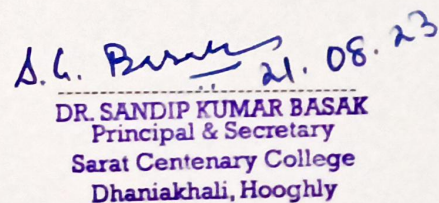 S. K. Basak 21.08.23
DR. SANDIP KUMAR BASAK
Principal & Secretary
Sarat Centenary College
Dhaniakhali, Hooghly